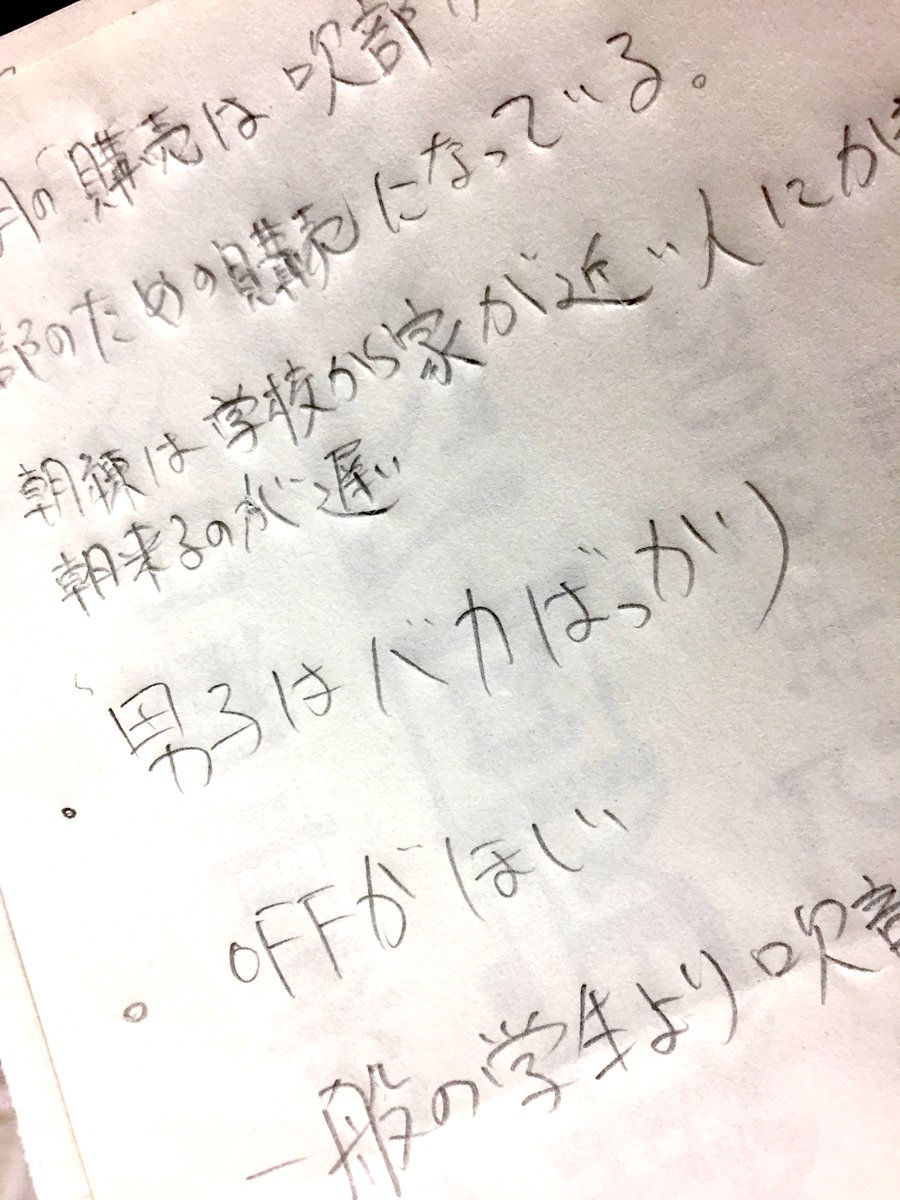 の購売は吹部
部のための購売になっている。
朝練は学校から家が近い人にかぎ
朝来るのが遅い
男子はバカばっかり
OFFがほしい
一般の学生より吹部